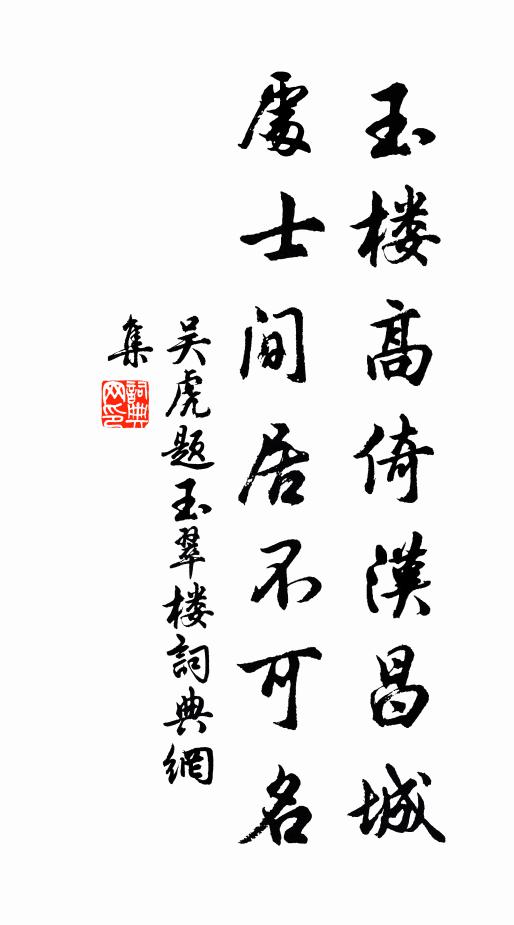 玉楼高倚漢昌城
處士间居不可名
吴虎题玉翠楼詞典網
集
詞典网印